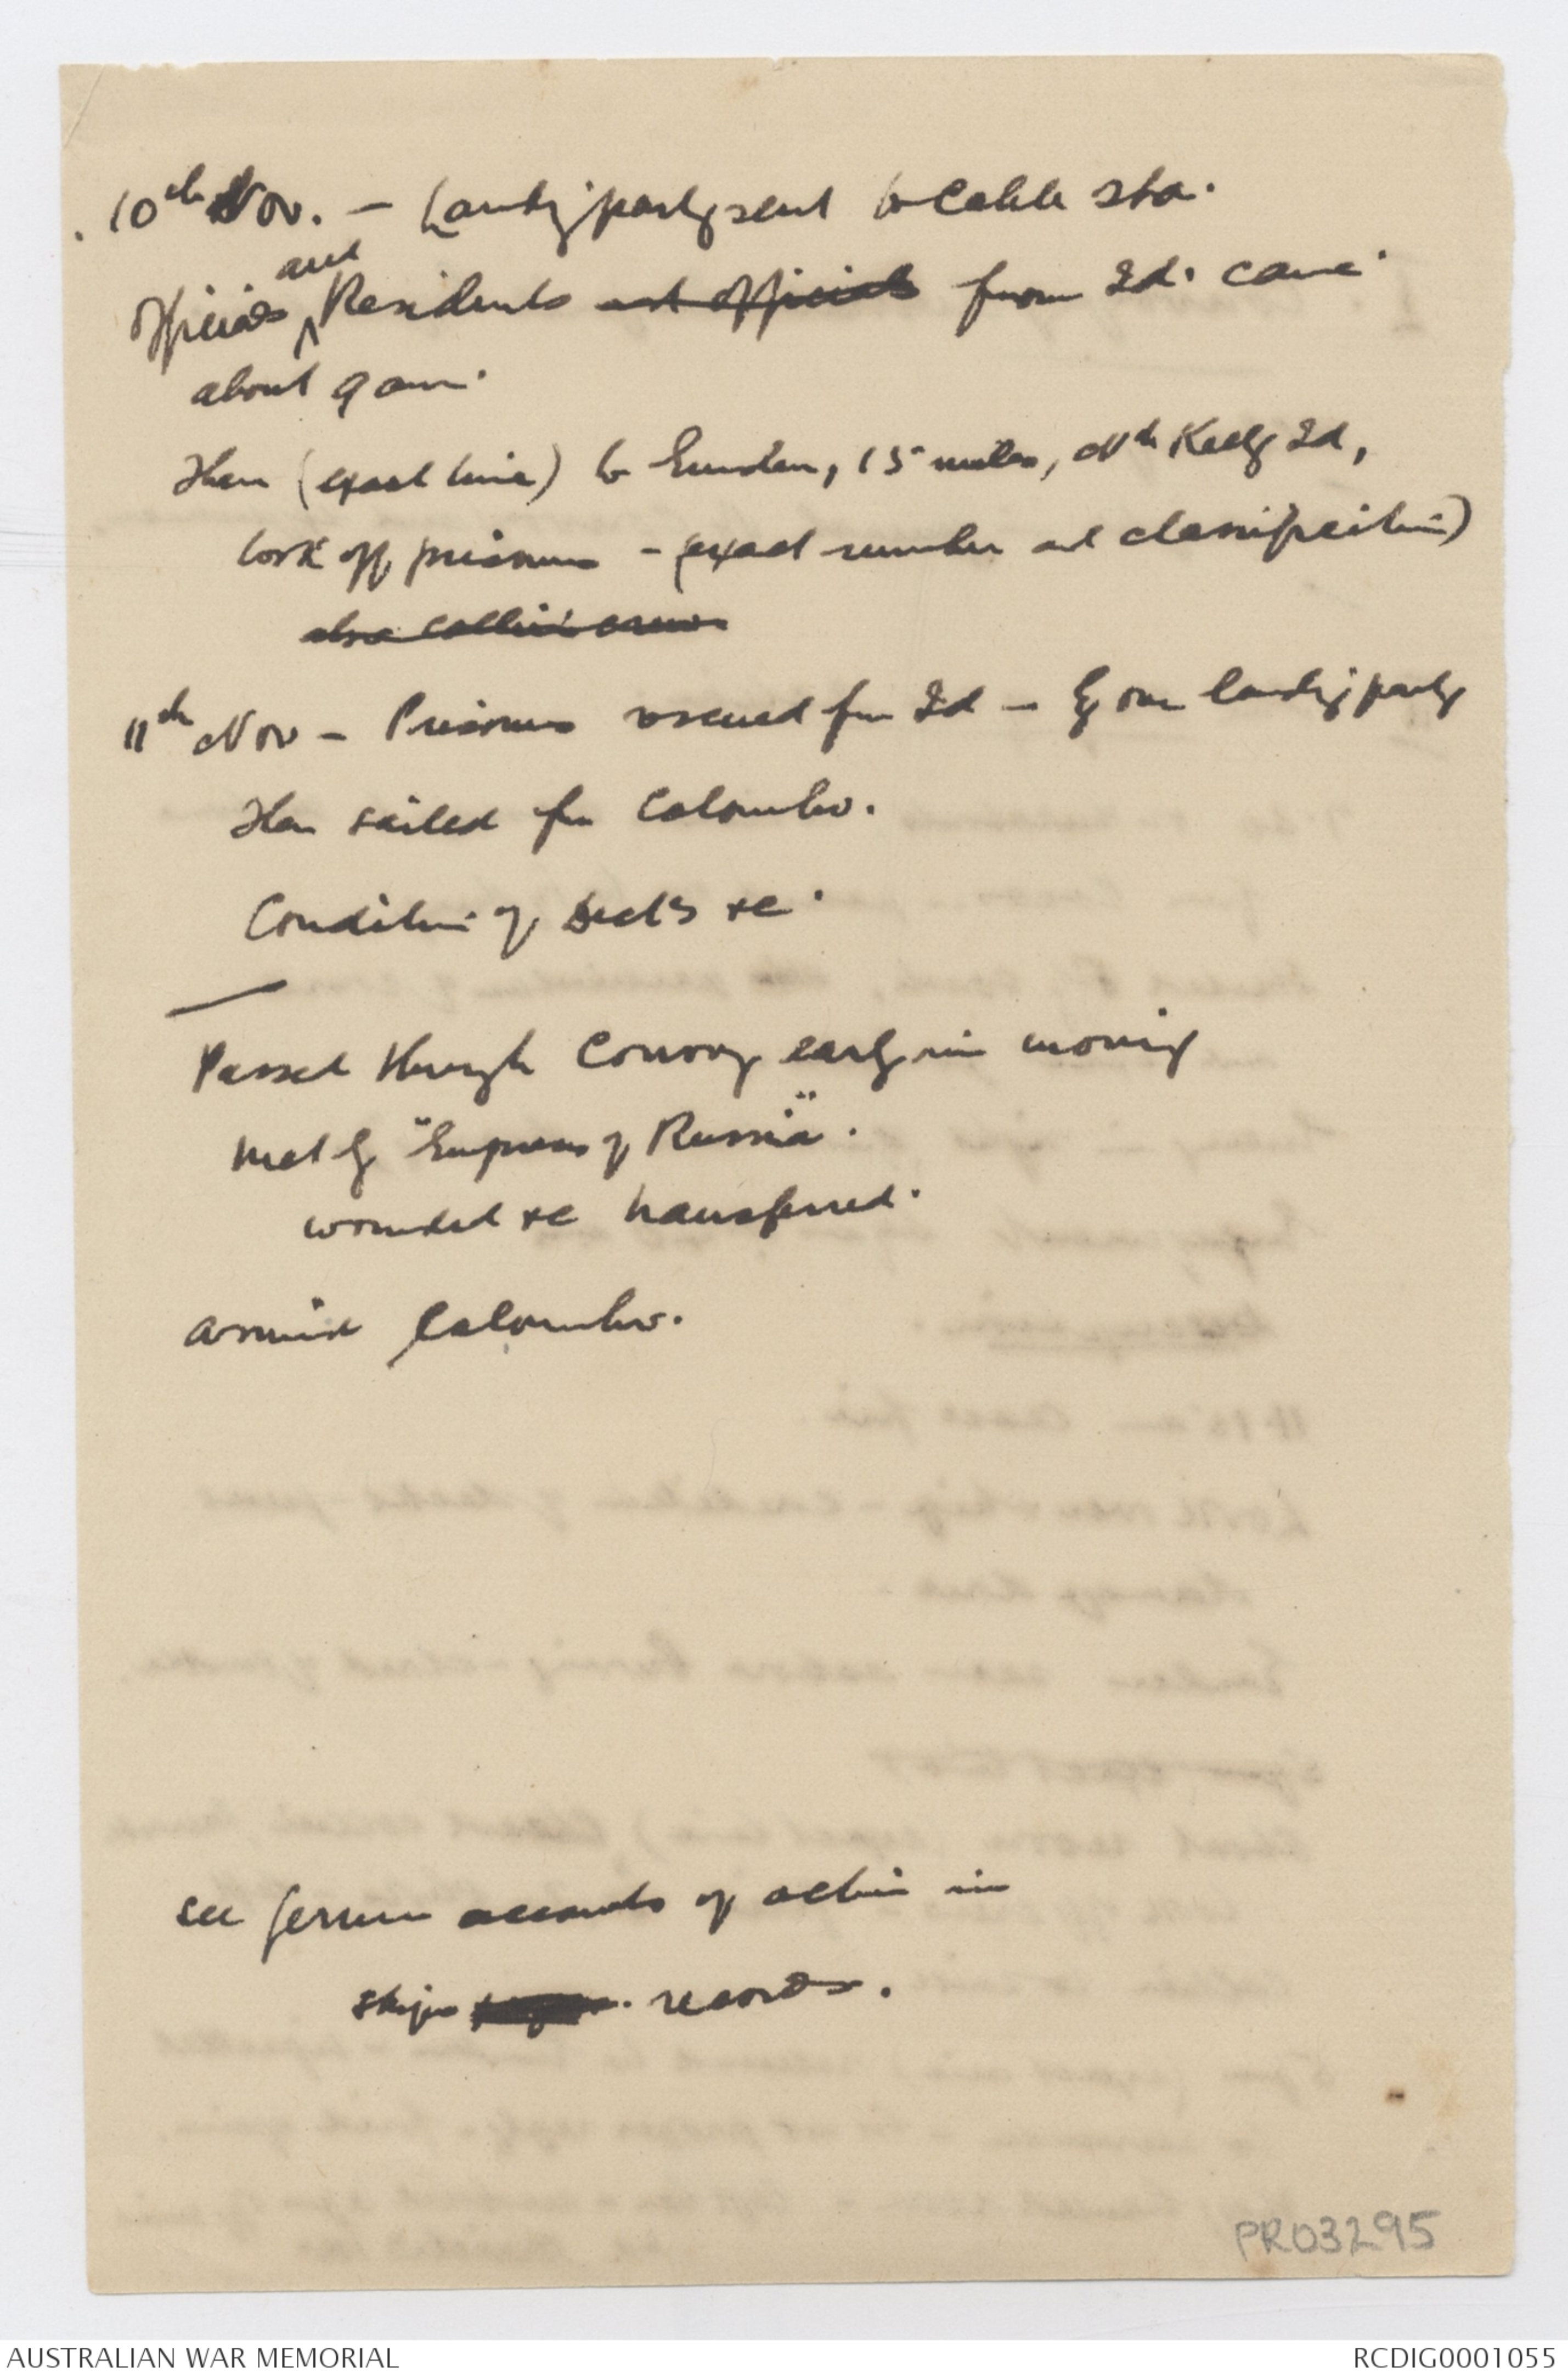 10th Nov. - Landing party sent to Cable sta.
Officials and Residents and officials from Id. came
about 9 am.
Then (exact time) to Emden, 15 miles, Nth Keelg Id,
took off prisoners - (exact number and classification)
also collier's crew
11th Nov - Prisoners rescued from Id - by our landing party
Then sailed for Colombo.
Condition of decks &c.
Passed through Convoy early in morning
met by "Empress of Russia".
wounded &c transferred.
Arrived Colombo.
see German accounts of action in
ships records.
PR03295
AUSTRALIAN WAR MEMORIAL
RCDIG0001055